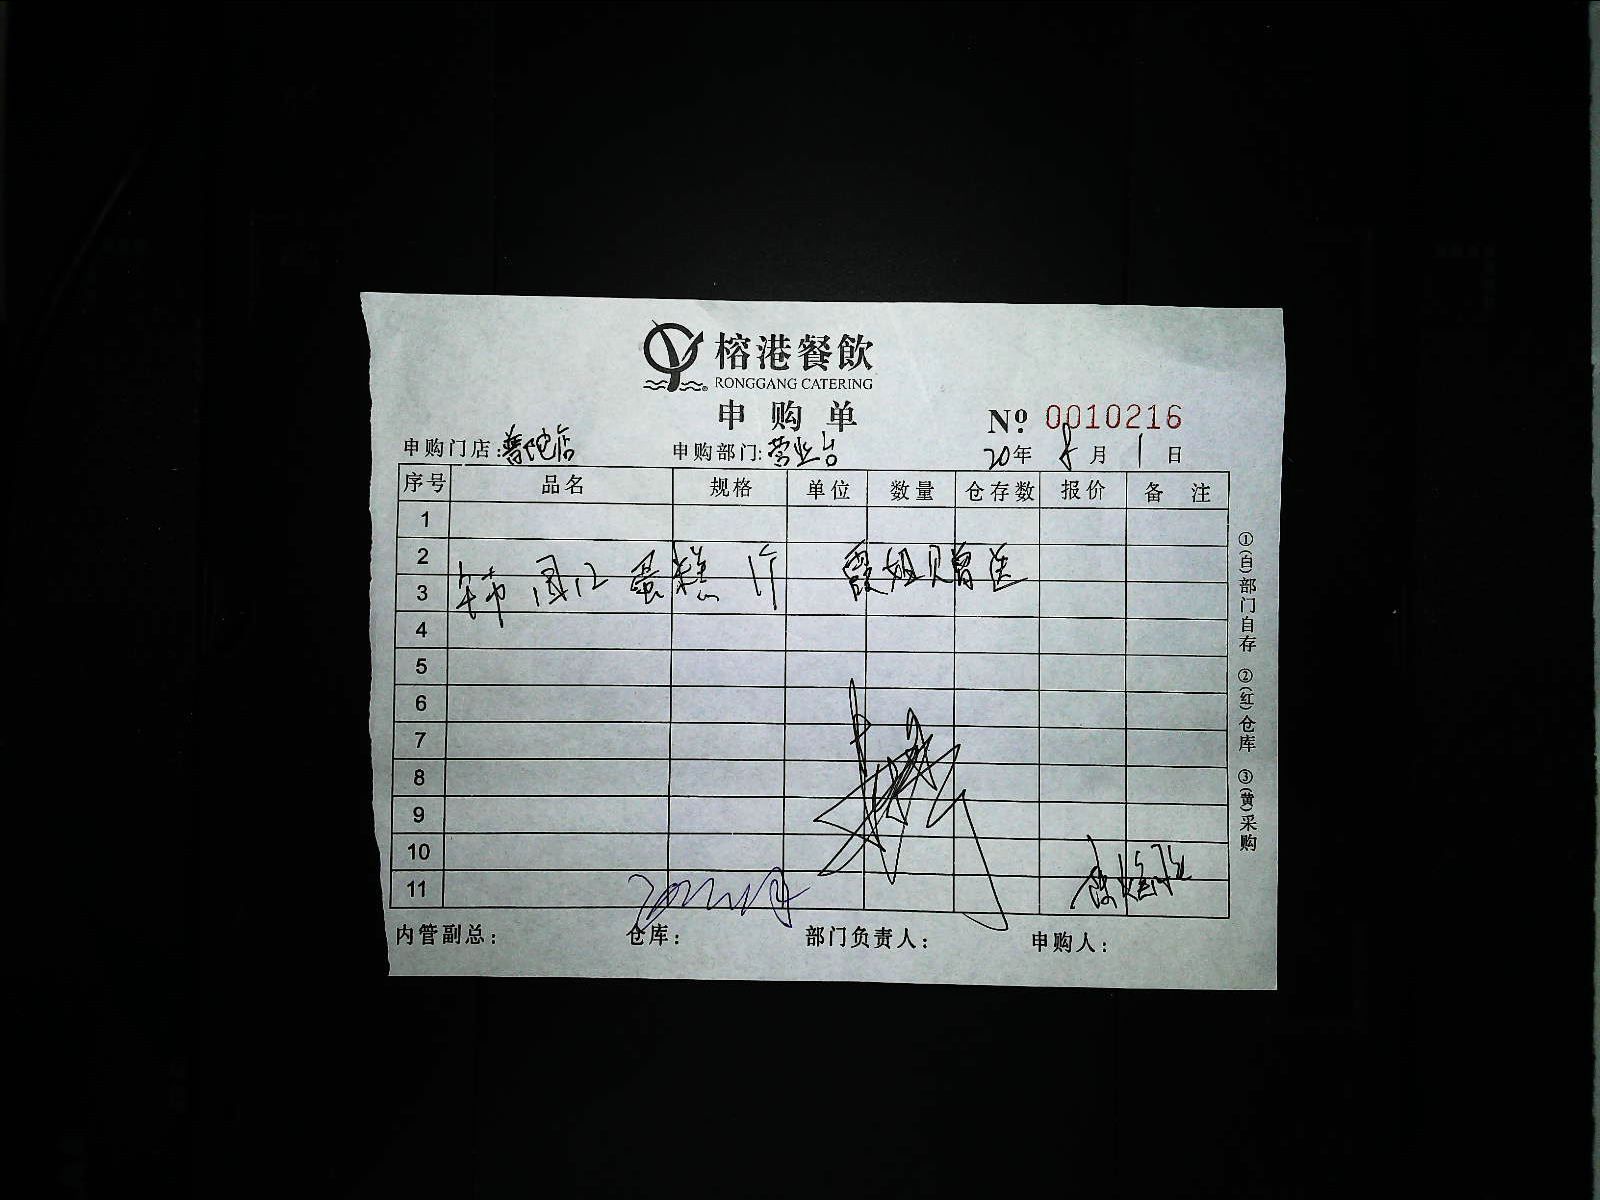 榕港餐飲
RONGGANG CATERING
申购单
№ 0010216
申购门店:普陀店 申购部门:营业台 20年 8月 1日
序号 品名 规格 单位 数量 仓存数 报价 备注
1
2
3
蛋糕 1个 霞姐赠送
4
5
6
7
8
9
10
11
内管副总: 仓库: 部门负责人: 申购人:
①(白)部门自存 ②(红)仓库 ③(黄)采购